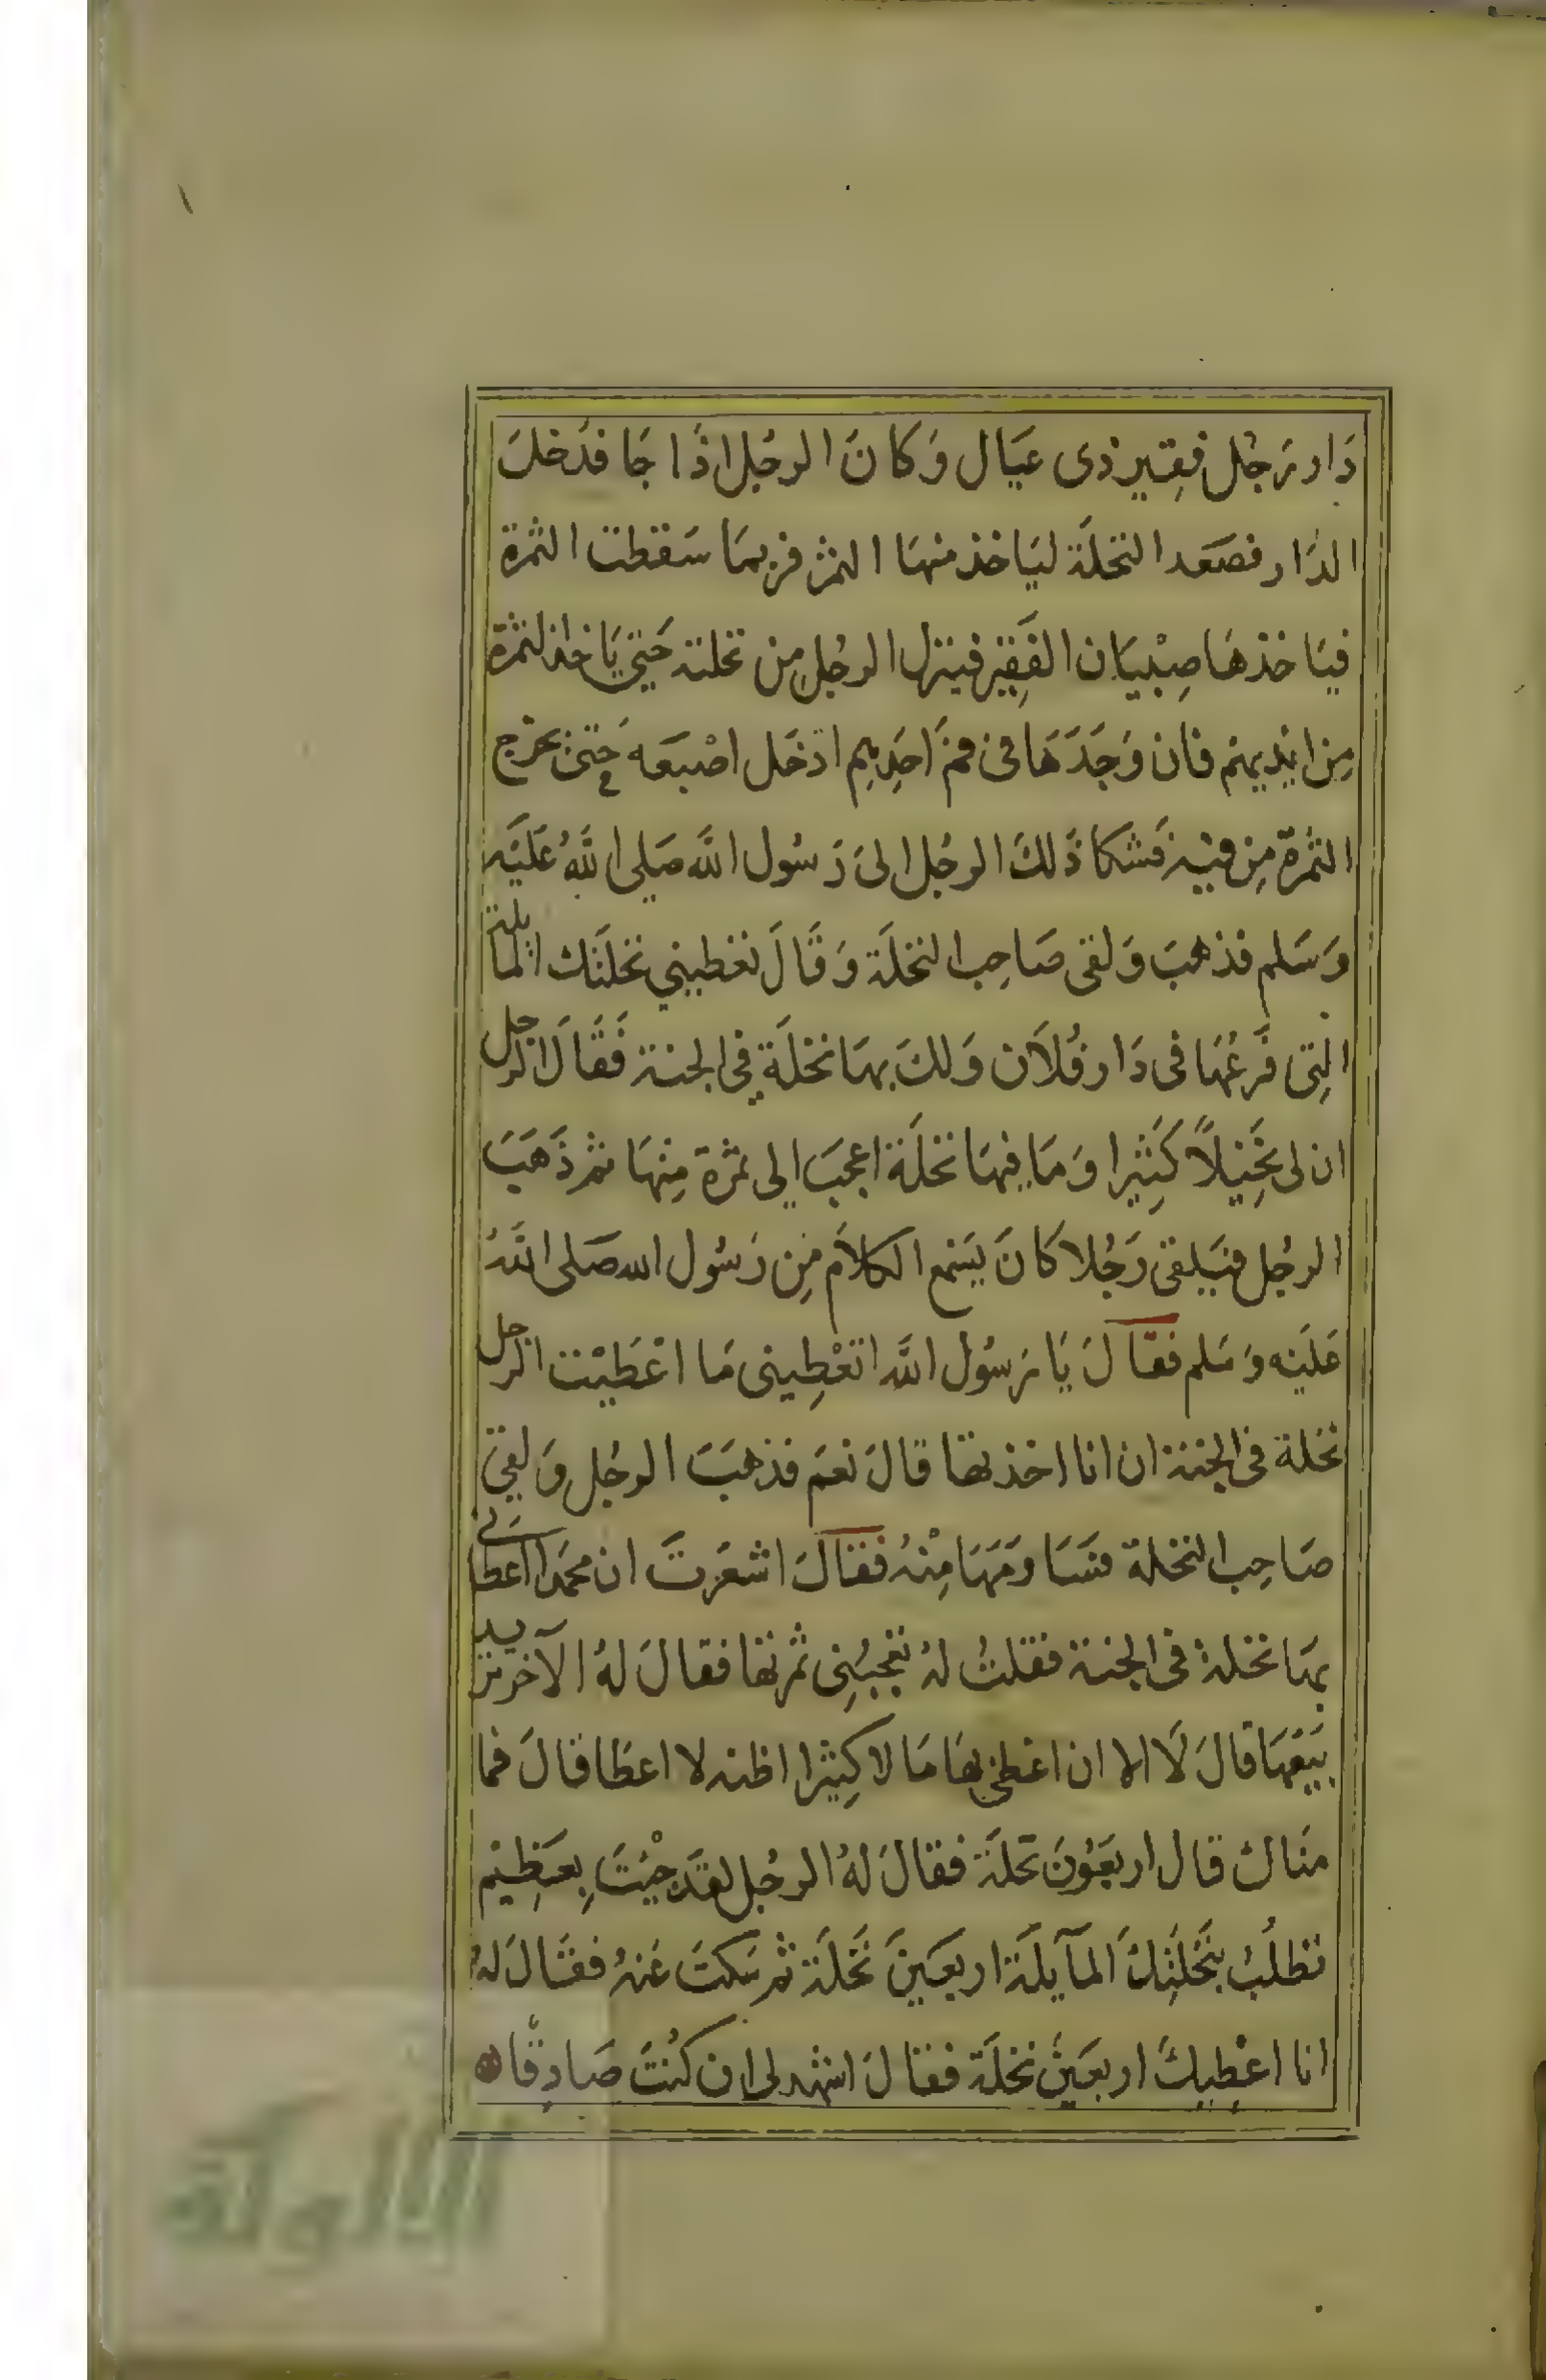 دَار رَجُل فقِير ذى عيَال وَكانَ الرجُل اذَا جَا فدَخلَ
الدَار فصَعَد النخلَة ليَاخذ منهَا الثمر فربمَا سَقطت الثمرة
فيَاخذهَا صِبْيَان الفَقِير فينزل الرجُل مِن نخلته حَتي يَاخذ الثمرة
مِن ايْديهم فان وَجَدَهَا فى فم احَدِهِم ادْخَل اصْبعَه حَتى يخرج
الثمرة مِن فيه فشكا ذلكَ الرجُل الىَ رَسُول اللَّه صَلى اللَّهُ عَليَه
وَسَلم فذهَبَ وَلقى صَاحِب النخلَة وَقَالَ تعْطيني نخلَتك المايلة
التِى فَرعُهَا فى دَار فُلاَن وَلكَ بهَا نخلَة فِى الجنة فَقَالَ الرجل
ان لى نَخِيْلاً كَثِيْرا وَمَا فيهَا نخلَة اعجبَ الى ثمرة مِنهَا ثم ذَهَبَ
الرجُل فيَلقى رَجُلا كانَ يَسْمع الكلاَم مِن رَسُول الله صَلى اللَّهُ
عَليَه وَسَلم فقالَ يَا رَسُول اللَّه اتعْطِينى مَا اعْطَيْت الرجل
نخلة فى الجنة ان انا اخذتها قالَ نعَم فذهَبَ الرجُل وَلقىَ
صَاحِب النخلة فسَاومَهَا مِنْهُ فقالَ اشعَرتَ ان محمَدا اعطانى
بهَا نخلة فى الجنة فقلتُ لهُ يعْجبُنِى ثمرتها فقالَ لهُ الآخر تريد
بَيْعَهَا قالَ لَا الا ان اعْطى بهَا مَا لا كِثيْرا اظنه لا اعطَا قالَ فما
منَاك قال اربعَوُنَ نخلَة فقالَ لهُ الرجُل لقَد جِيْتَ بِعَظِيْم
تطلُبُ بنَخْلَتِكَ المآيلَة اربعَينَ نَخلَة ثم سَكتَ عَنهُ فقَالَ لهُ
انا اعْطِيكَ اربعَينَ نخلَة فقَالَ اشهد لى ان كنُتَ صَادِقًا
الألوكة